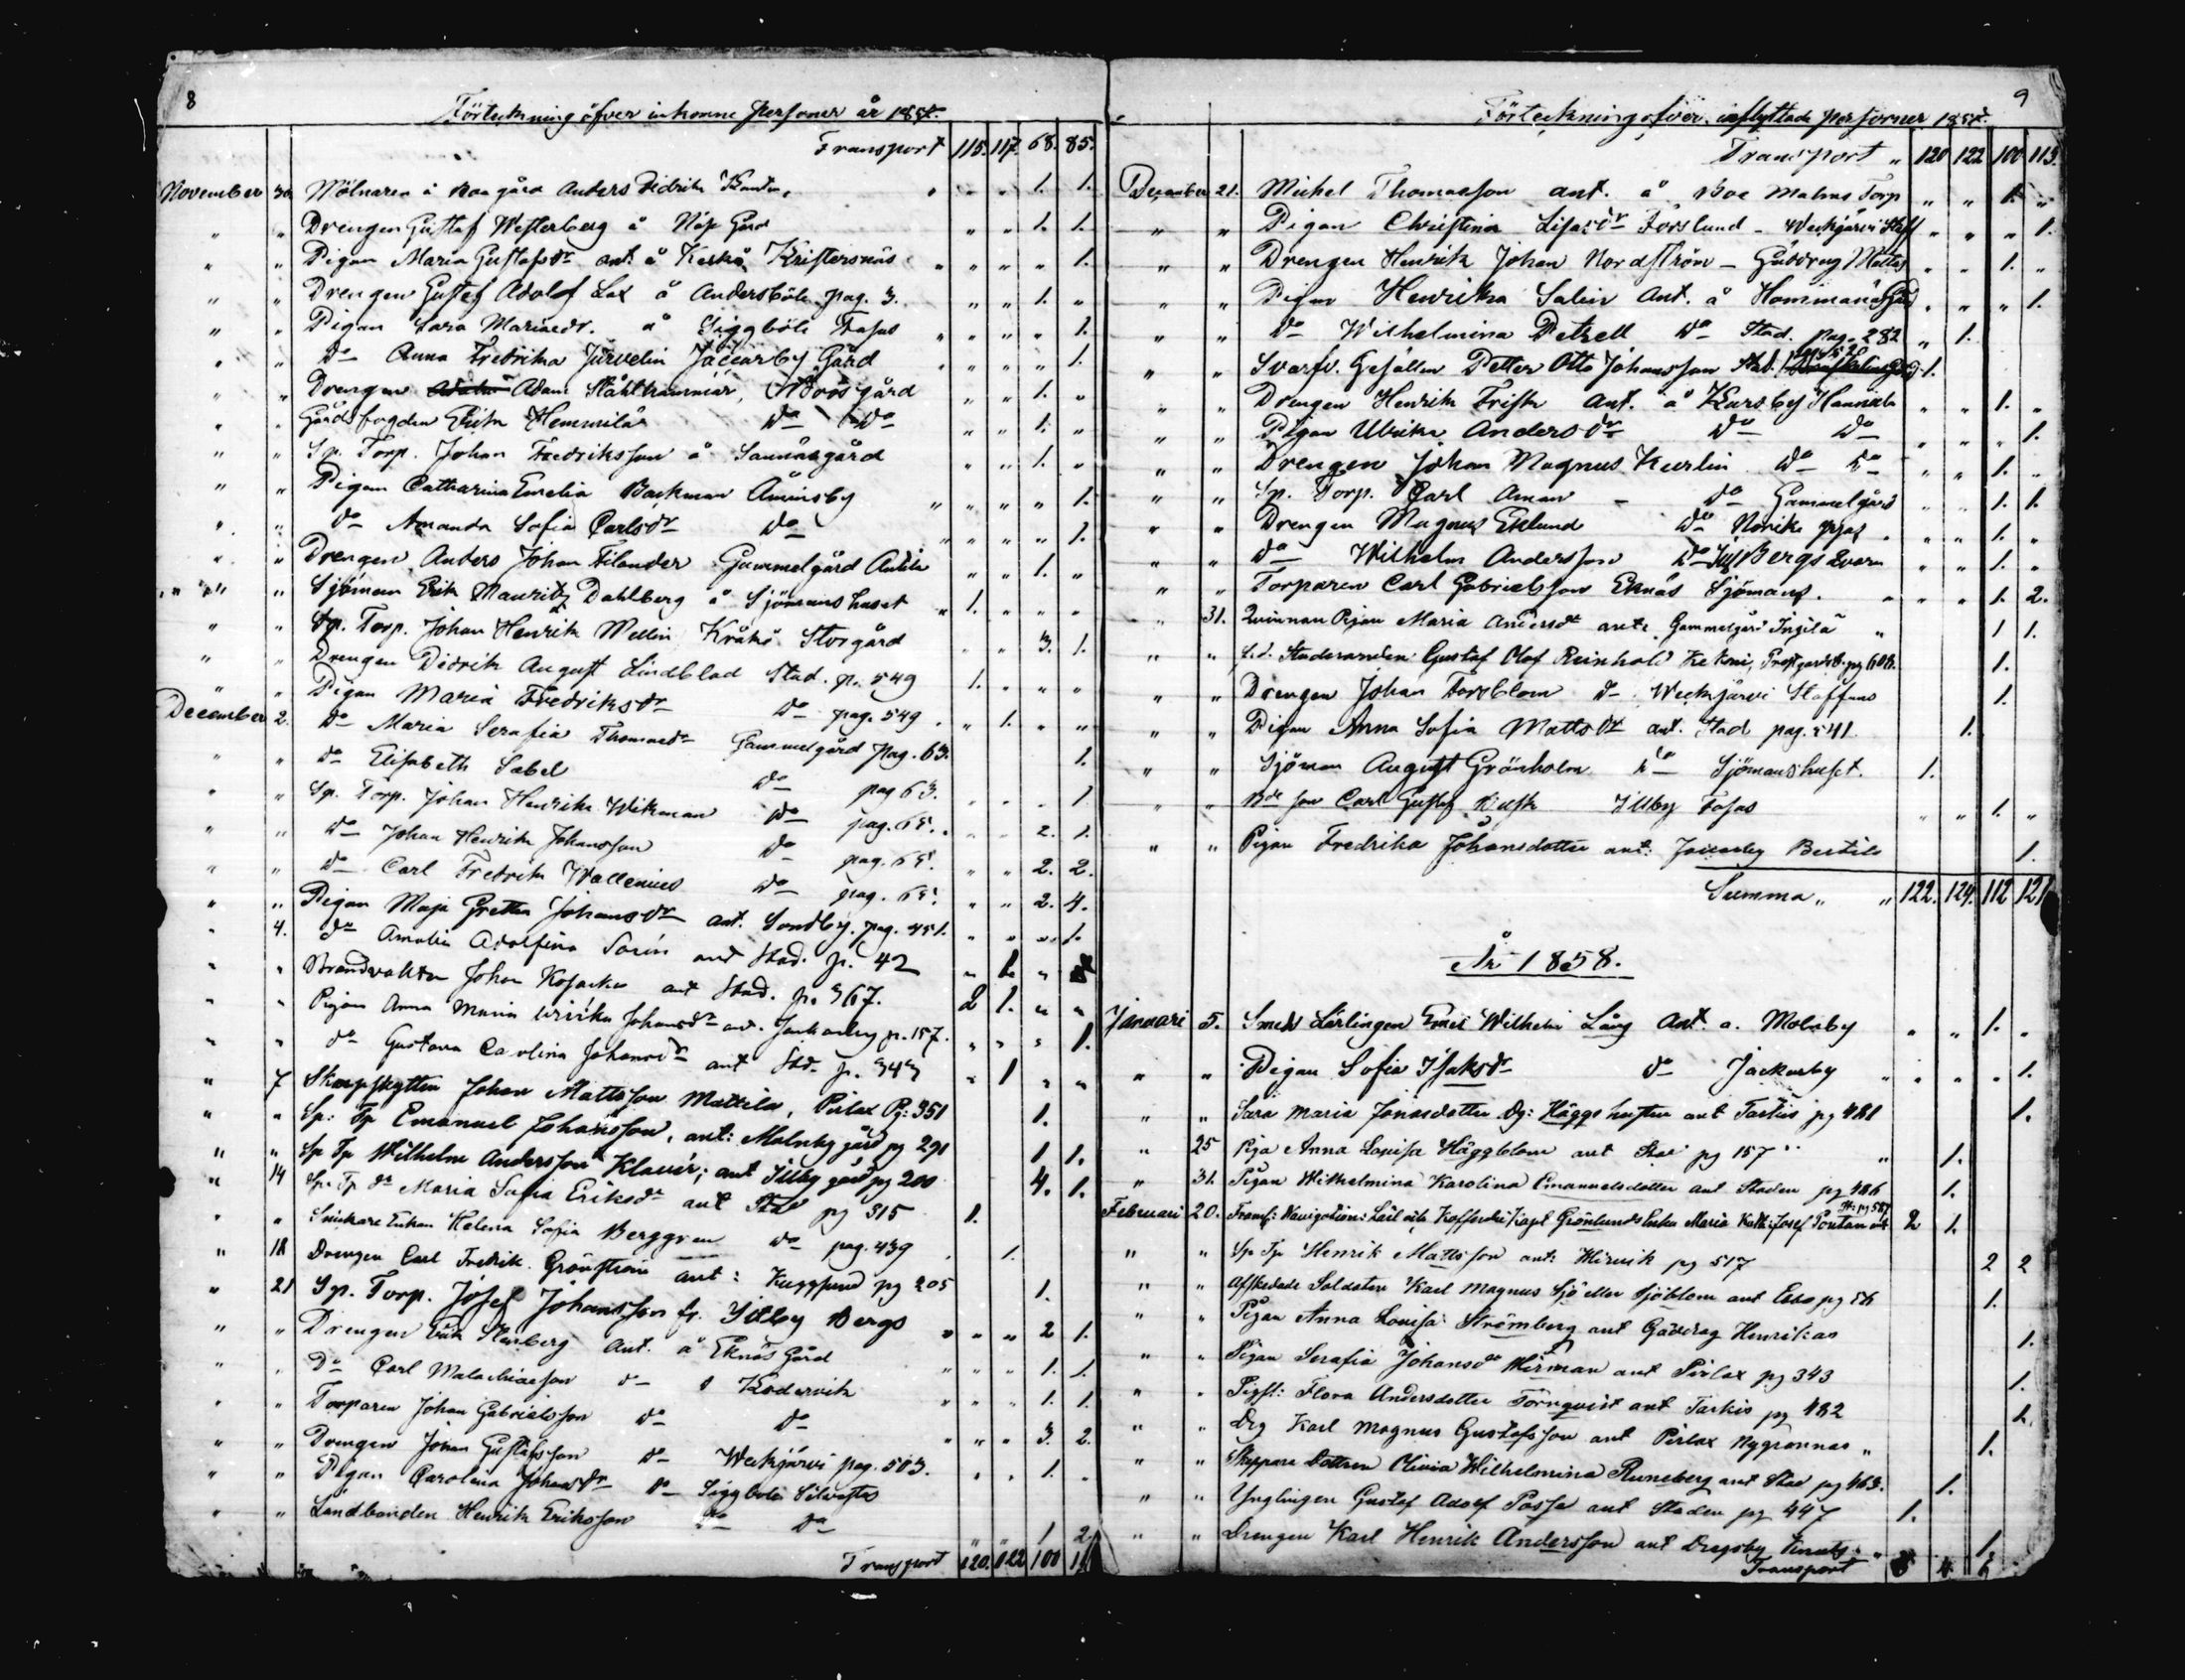 8
Förteckning öfver inkomne personer år 1857.
Transport 115. 117. 68. 85.
November 30. Mölnaren å Boe gård Anders Didrik 1. 1.
" " Drengen Gustaf Westerberg å Näse Gård " " 1. 1.
" " Pigan Maria Gustafsdr ant. å Kristersnäs " " " 1.
" " Drengen Gustaf Adolf Lax å Andersböle pag. 3. " " 1. "
" " Pigan Sara Mariaedr. å Siggböle " " " 1.
" " Do Anna Fredrika Järvelin Jackarby Gård " " " 1.
" " Drengen Adam Stålhammar, gård " " 1. "
" " Gårdsfogden Erik Hemmilä do do " " 1. "
" " Sp. Torp. Johan Fredriksson å Sannäsgård " " 1. "
" " Pigan Catharina Emelia Backman Åminsby " " " 1.
" " do Amanda Sofia Carlsdr do " " " 1.
" " Drengen Anders Johan Filander Gammelgård " " 1. "
" " Sjöman Erik Mauritz Dahlberg å Sjömanshuset " 1. " " "
" " Sp. Torp. Johan Henrik Mellin Kråkö Storgård " " 3. 1.
" " Drengen Didrik August Lindblad Stad. p. 549 1. " " "
" " Pigan Maria Fredriksdr do pag. 549 " 1. " "
December 2. do Maria Serafia Thomasdr Gammelgård pag. 63. 1.
" " do Elisabeth Sabel do pag 63. " " " 1
" " Sp. Torp. Johan Henrik Wikman do pag. 65. " " 2. 1.
" " do Johan Henrik Johansson do pag. 65. " " 2. 2.
" " do Carl Fredrik Wallenius do pag. 65. " " 2. 4.
" " Pigan Maja Gretha Johansdr ant. Sondby. pag. 451. " " " 1.
" 4. do Amalia Adolfina ant Stad. p. 42 " 1. "
" " Brandvakten Johan ant Stad. p. 367. 2 1. " "
" " Pigan Anna Maria Ulrika Johansdr ant. Jackarby p. 157. " " " 1.
" " do Gustava Carolina Johansdr ant Std. p. 343 " 1 " "
" 7 Skarpskytten Johan Mattsson Mattila, Pirlax Pg: 351 1.
" " Sp: Tp Emanuel Johansson, ant: Malmby gård pg 291 1 1.
" " Sp Tp Wilhelm Andersson Klavér; ant Illby gård pg 200 4. 1.
" 14 Maria Sofia Eriksdr ant Stad pg 315 1.
" " Snickare Enkan Helena Sofia Berggren do pag. 439 1.
" 18 Drengen Carl Fredrik Grönström ant: Kuggsund pg 205 1.
" 21 Sp. Torp. Josef Johansson fr. Illby Bergs " " 2 1.
" " Drengen Erik Stenberg Ant. å Eknäs Gård " " 1. 1.
" " Do Carl Malachiasson do å Kodervik " " 1. 1.
" " Torparen Johan Gabrielsson do do " " 3. 2.
" " Drengen Johan Gustafsson do Weckjärvi pag. 503. " " 1. "
" " Pigan Carolina Johansdr do Siggböle
" " Landbonden Henrik Eriksson do do " " 1 2.
Transport 120. 122 100
9
Förteckning öfver inflyttade personer 1857.
Transport " 120 122 100 113.
December 21. Michel Thomasson ant. å Boe Malms Torp " " 1. "
" " Pigan Christina Lisasdr Forslund - Weckjärvi " " " 1.
" " Drengen Henrik Johan Nordström - Gäddrag Mattas " " 1. "
" " Pigan Henrika Salin Ant. å Hommanäs Gård " " " 1.
" " do Wilhelmina Petrell do Stad. pag. 282 " 1.
" " Svarfv. Gesällen Petter Otto Johansson Stad. 1.
" " Drengen Henrik Frisk Ant. å Karsby Hannula " " 1. "
" " Pigan Ulrika Andersdr do do " " " 1.
" " Drengen Johan Magnus Kurlin do do " " 1. "
" " Sp. Torp. Carl Aman - do Gammelgård " " 1. 1.
" " Drengen Magnus Eklund do Norike " " 1. "
" " do Wilhelm Andersson do Bergs Qvarn " " 1. "
" " Torparen Carl Gabrielsson Eknäs Sjömans. " " 1. 2.
" 31. Quinnan Pigan Maria Andersdr ant. Gammelgård Ingila " 1 1.
" " Gustaf Olof Reinhold pg 608. 1.
" " Drengen Johan Forsblom do Weckjärvi Staffans 1.
" " Pigan Anna Sofia Mattsdr ant. Stad pag. 541. 1.
" " Sjöman August Grönholm do Sjömanshuset. 1.
" " son Carl Gustaf Illby " " 1. "
" " Pigan Fredrika Johansdotter ant: Jackarby Bertils 1.
Summa " " 122. 124. 112 121
År 1858.
Januari 5. Smeds Lärlingen Wilhelm Lång Ant. a. Molnby " " 1. "
" " Pigan Sofia Isaksdr do Jackarby " " " 1.
" " Sara Maria Jonasdotter Häggs hustru ant Tarkis pg 481 1.
" 25 Piga Anna Lovisa Häggblom ant Stad pg 157 " 1.
" 31. Pigan Wilhelmina Karolina Emanuelsdotter ant Staden pg 486 1.
Februari 20. Grönlunds Enka Maria 2 1.
" " Sp Tp Henrik Mattsson ant: pg 517 2 2
" " Afskedade Soldaten Karl Magnus Sjö eller Sjöblom ant 1.
" " Pigan Anna Lovisa Strömberg ant Gäddrag Henrikas 1.
" " Pigan Serafia Johansdr ant Pirlax pg 343 1.
" " Flora Andersdotter Törnqvist ant Tarkis pg 482 1.
" " Drg Karl Magnus Gustafsson ant Pirlax Nygrannas " 1.
" " Skeppare Dottren Olivia Wilhelmina Runeberg ant Stad pg 463. 1.
" " Ynglingen Gustaf Adolf Posse ant Staden pg 447 1.
" " Drengen Karl Henrik Andersson ant Dregsby " 1.
Transport